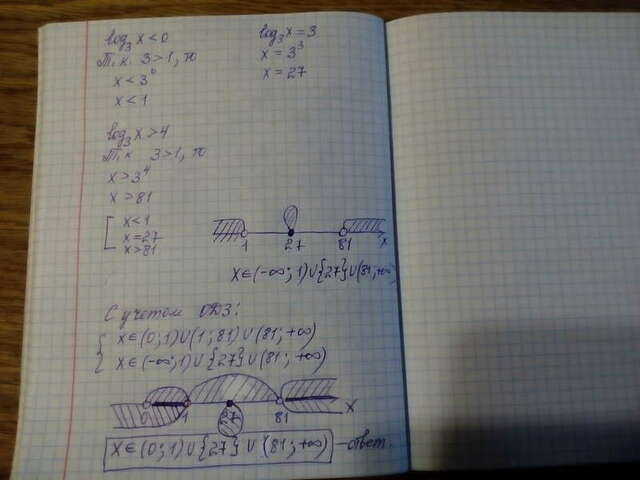 log₃ x < 0
Т.к. 3 > 1, то
x < 3⁰
x < 1
log₃ x = 3
x = 3³
x = 27
log₃ x > 4
Т.к 3 > 1, то
x > 3⁴
x > 81
[ x < 1
x = 27
x > 81
1 27 81 x
x ∈ (-∞; 1) ∪ {27} ∪ (81; +∞)
С учетом ОДЗ:
{ x ∈ (0; 1) ∪ (1; 81) ∪ (81; +∞)
x ∈ (-∞; 1) ∪ {27} ∪ (81; +∞)
0 1 27 81 x
x ∈ (0; 1) ∪ {27} ∪ (81; +∞) - ответ.